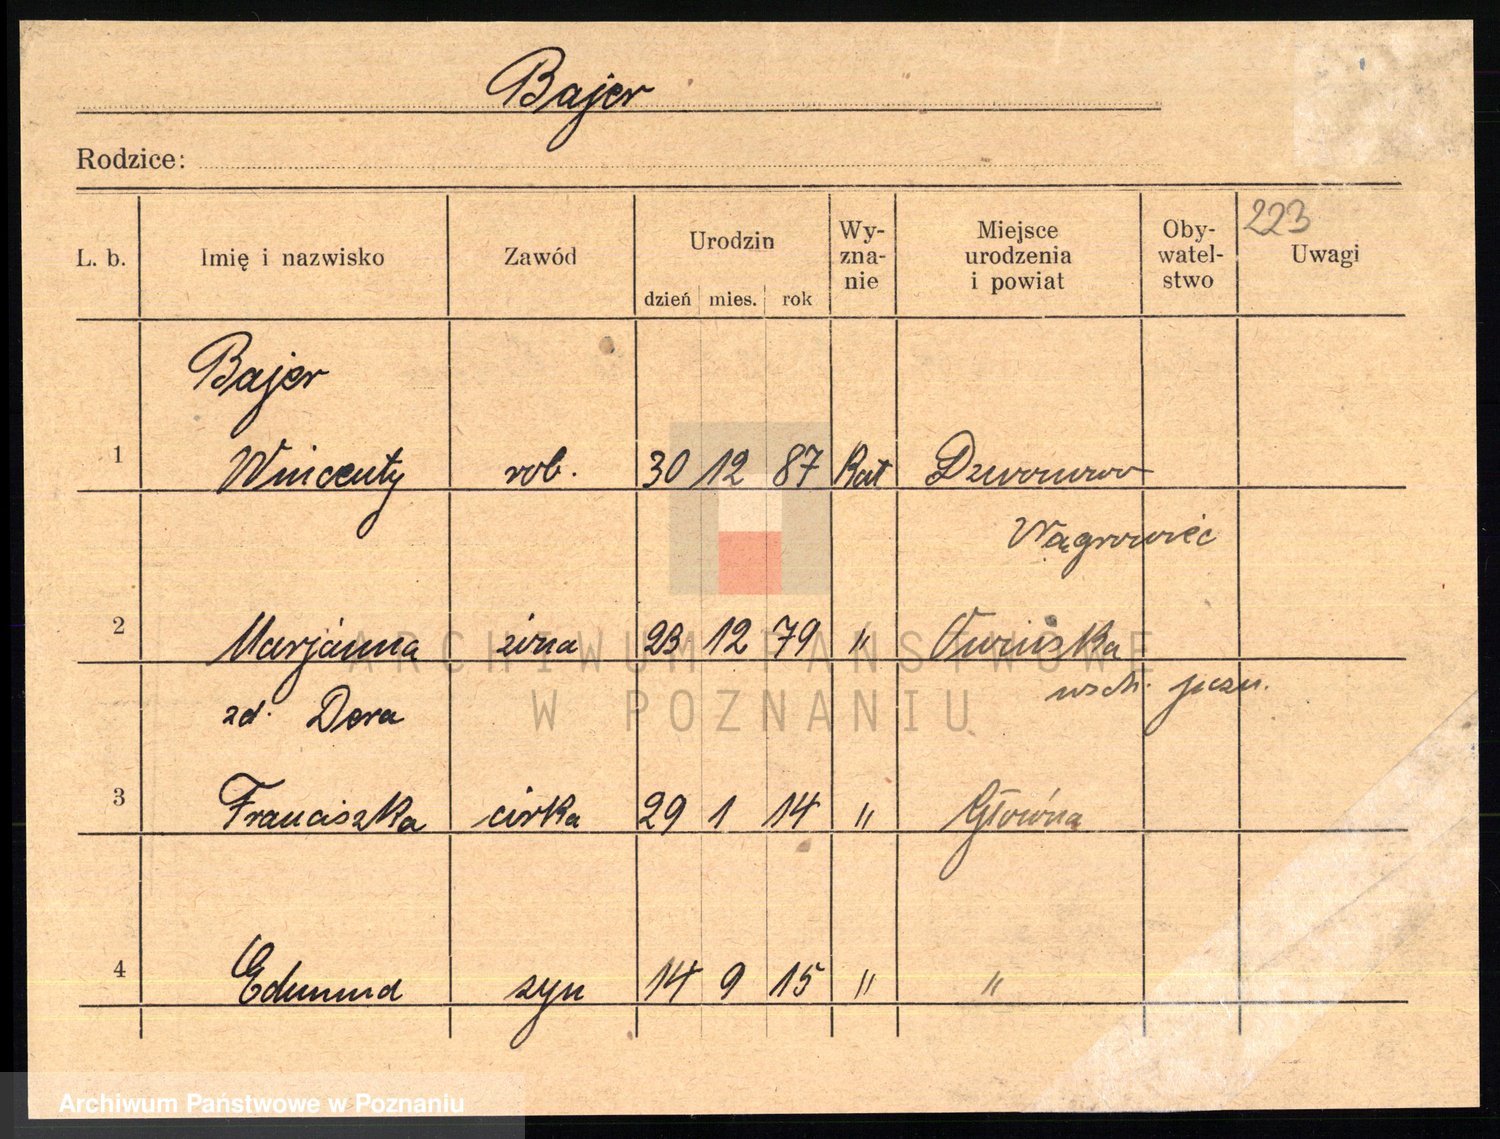 Bajer
Rodzice:
223
L. b. Imię i nazwisko Zawód Urodzin dzień mies. rok Wy-zna-nie Miejsce urodzenia i powiat Oby-watel-stwo Uwagi
Bajer
1 Wincenty rob. 30 12 87 Kat Dzwonowo
Wągrowiec
2 Marjanna żona 23 12 79 "
zd. Dera wsch.
3 Franciszka córka 29 1 14 " Główna
4 Edmund syn 14 9 15 " "
ARCHIWUM PAŃSTWOWE
W POZNANIU
Archiwum Państwowe w Poznaniu